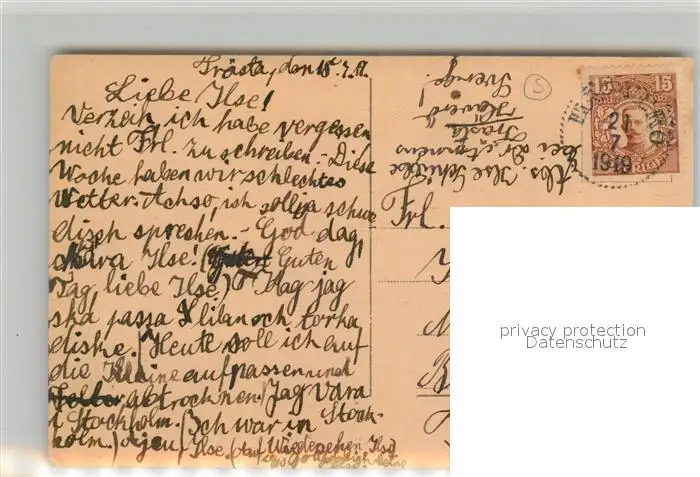 Trästa, den 18.7.19.
Liebe Ilse!
Verzeih, ich habe vergessen
nicht Frl. zu schreiben. - Diese
Woche haben wir schlechtes
Wetter. Achso, ich soll ja schwe
disch sprechen. - God dag,
Kära Ilse! (Guten
Tag, liebe Ilse.) - I dag jag
ska passa lilla och torka
diske. (Heute soll ich auf
die Kleine aufpassen und
abtrochnen.) Jag vara
i Stockholm. (Ich war in Stock-
holm.) Ajeu, Ilse. (Auf Wiedersehen Ilse)
Abs. Ilse
bei
Trästa
Sverge!
S
15 15
21
7
1919
Frl.
privacy protection
Datenschutz